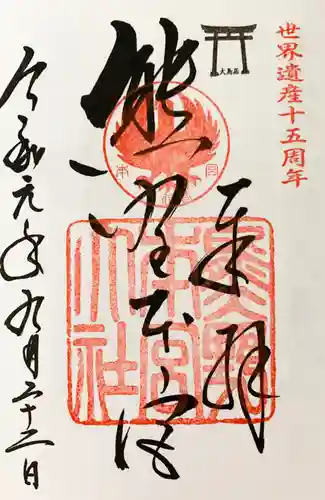 世界遺産十五周年
大鳥居
奉拝
熊野本宮
熊野
本宮
大社
令和元年九月二十二日